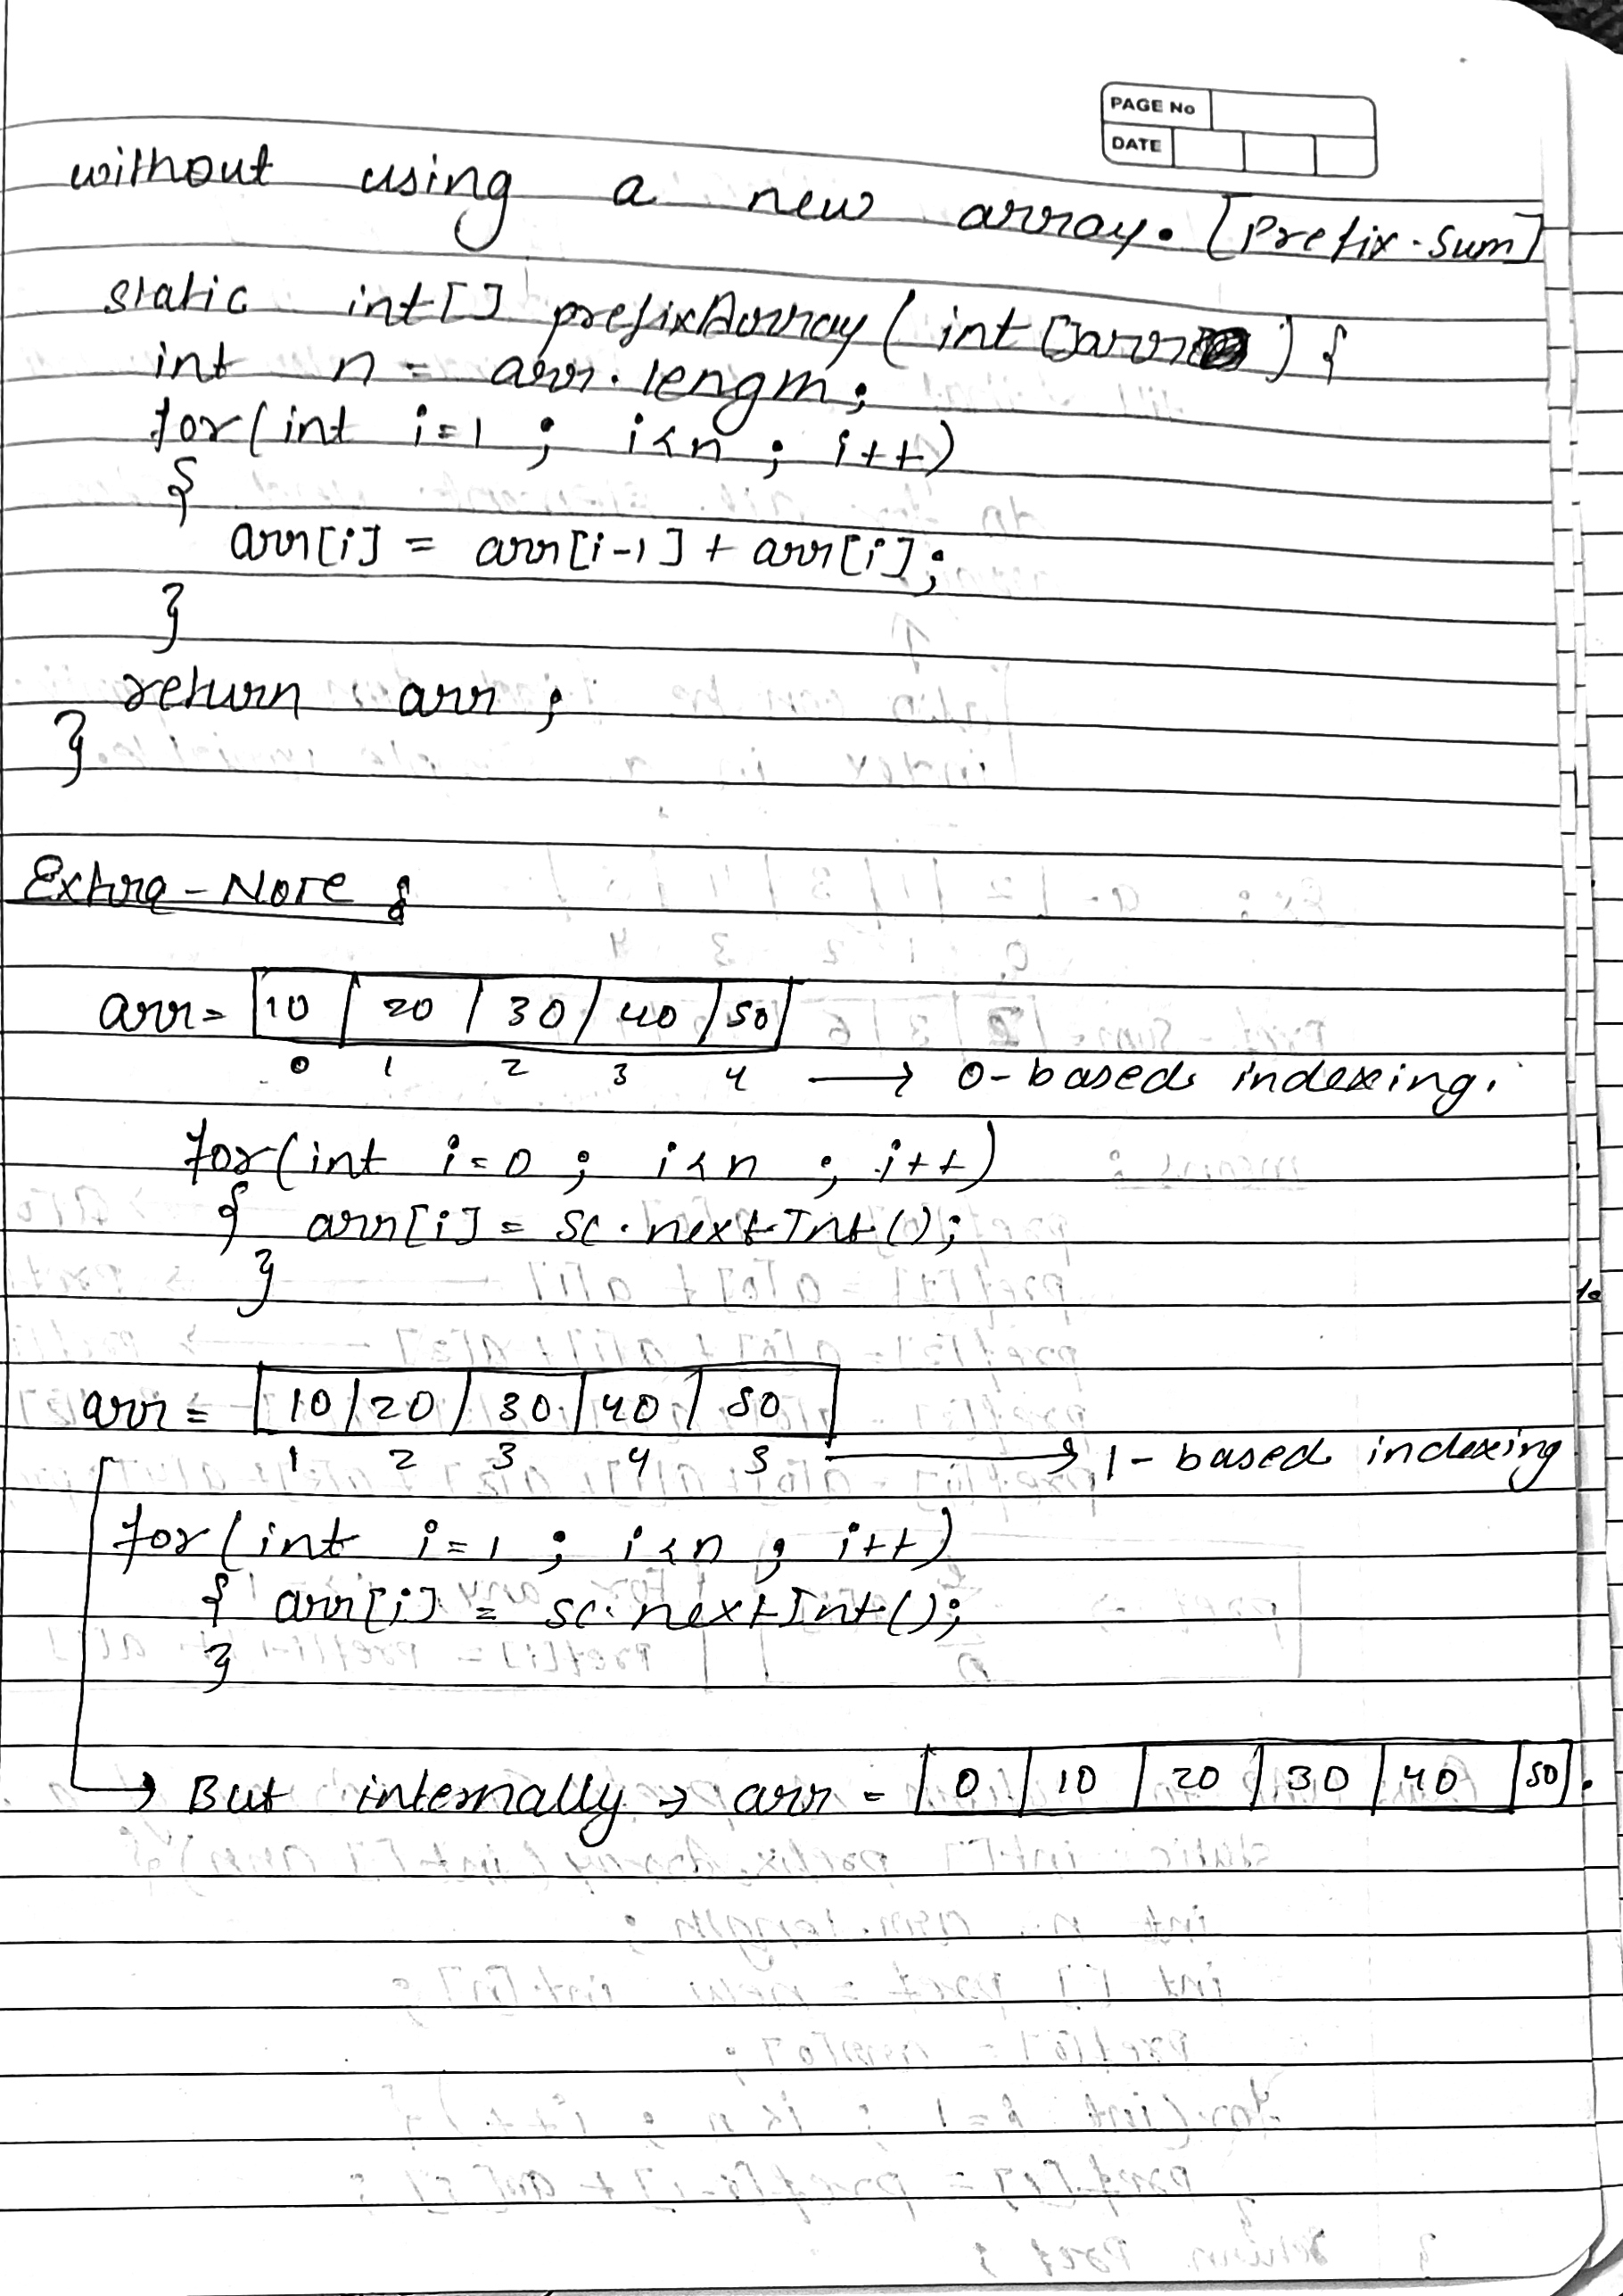 PAGE No
DATE
without using a new array. [Prefix-Sum]
static int[] prefixArray(int []arr) {
int n = arr.length;
for(int i=1 ; i<n ; i++)
{
arr[i] = arr[i-1] + arr[i];
}
return arr ;
}
Extra-Note :
arr= 10 | 20 | 30 | 40 | 50
0 1 2 3 4 → 0-based indexing.
for(int i=0 ; i<n ; i++)
{ arr[i] = sc.nextInt();
}
arr= 10 | 20 | 30 | 40 | 50
1 2 3 4 5 → 1-based indexing
for(int i=1 ; i<n ; i++)
{ arr[i] = sc.nextInt();
}
→ But internally → arr = 0 | 10 | 20 | 30 | 40 | 50 .